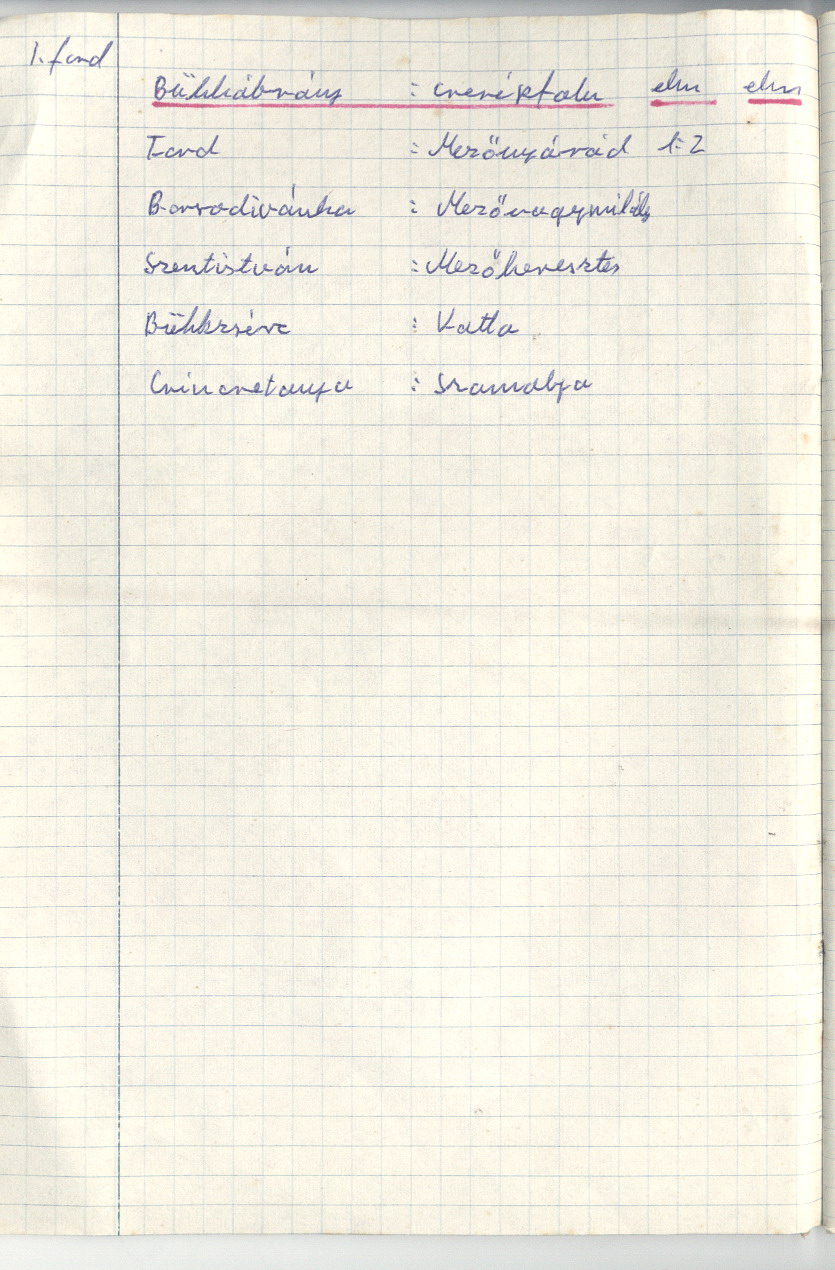 1. ford
Bükkábrány : Cserépfalu elm elm
Tard : Mezőnyárád 1:2
Borsodivánka : Mezőnagymihály
Szentistván : Mezőkeresztes
Bükkzsérc : Vatta
Csincsetanya : Szomolya